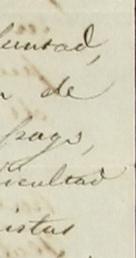 luntad,
n de
pago,
ficultad
istas